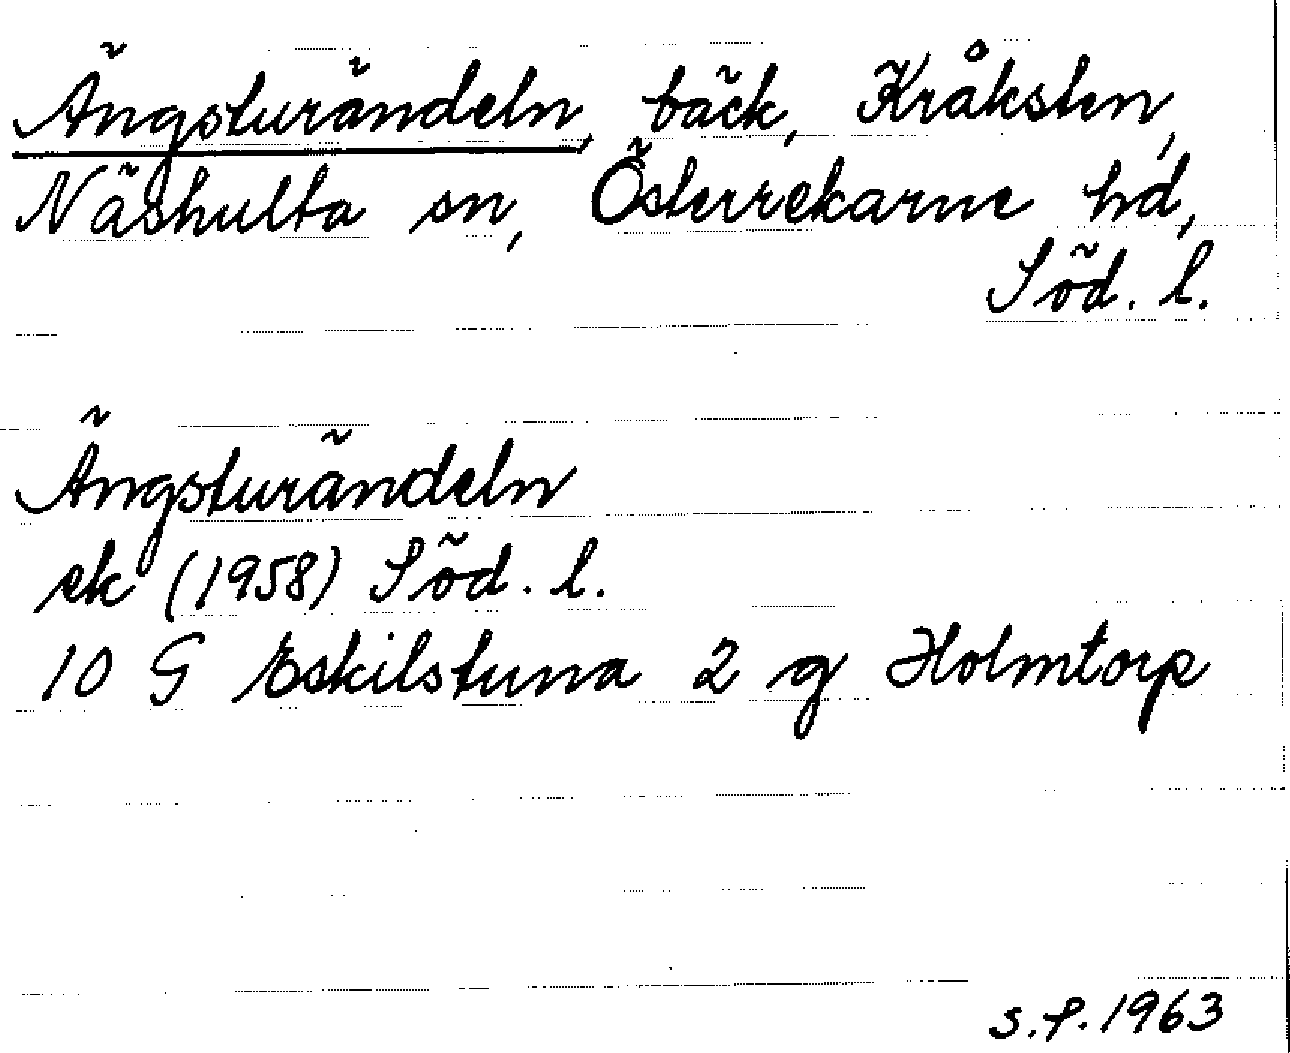 Ängsturändeln, bäck, Kråksten,
Näshulta sn, Österrekarne hd,
Söd. l.
Ängsturändeln
ek (1958) Söd. l.
10 G Eskilstuna 2 g Holmtorp
S.P. 1963